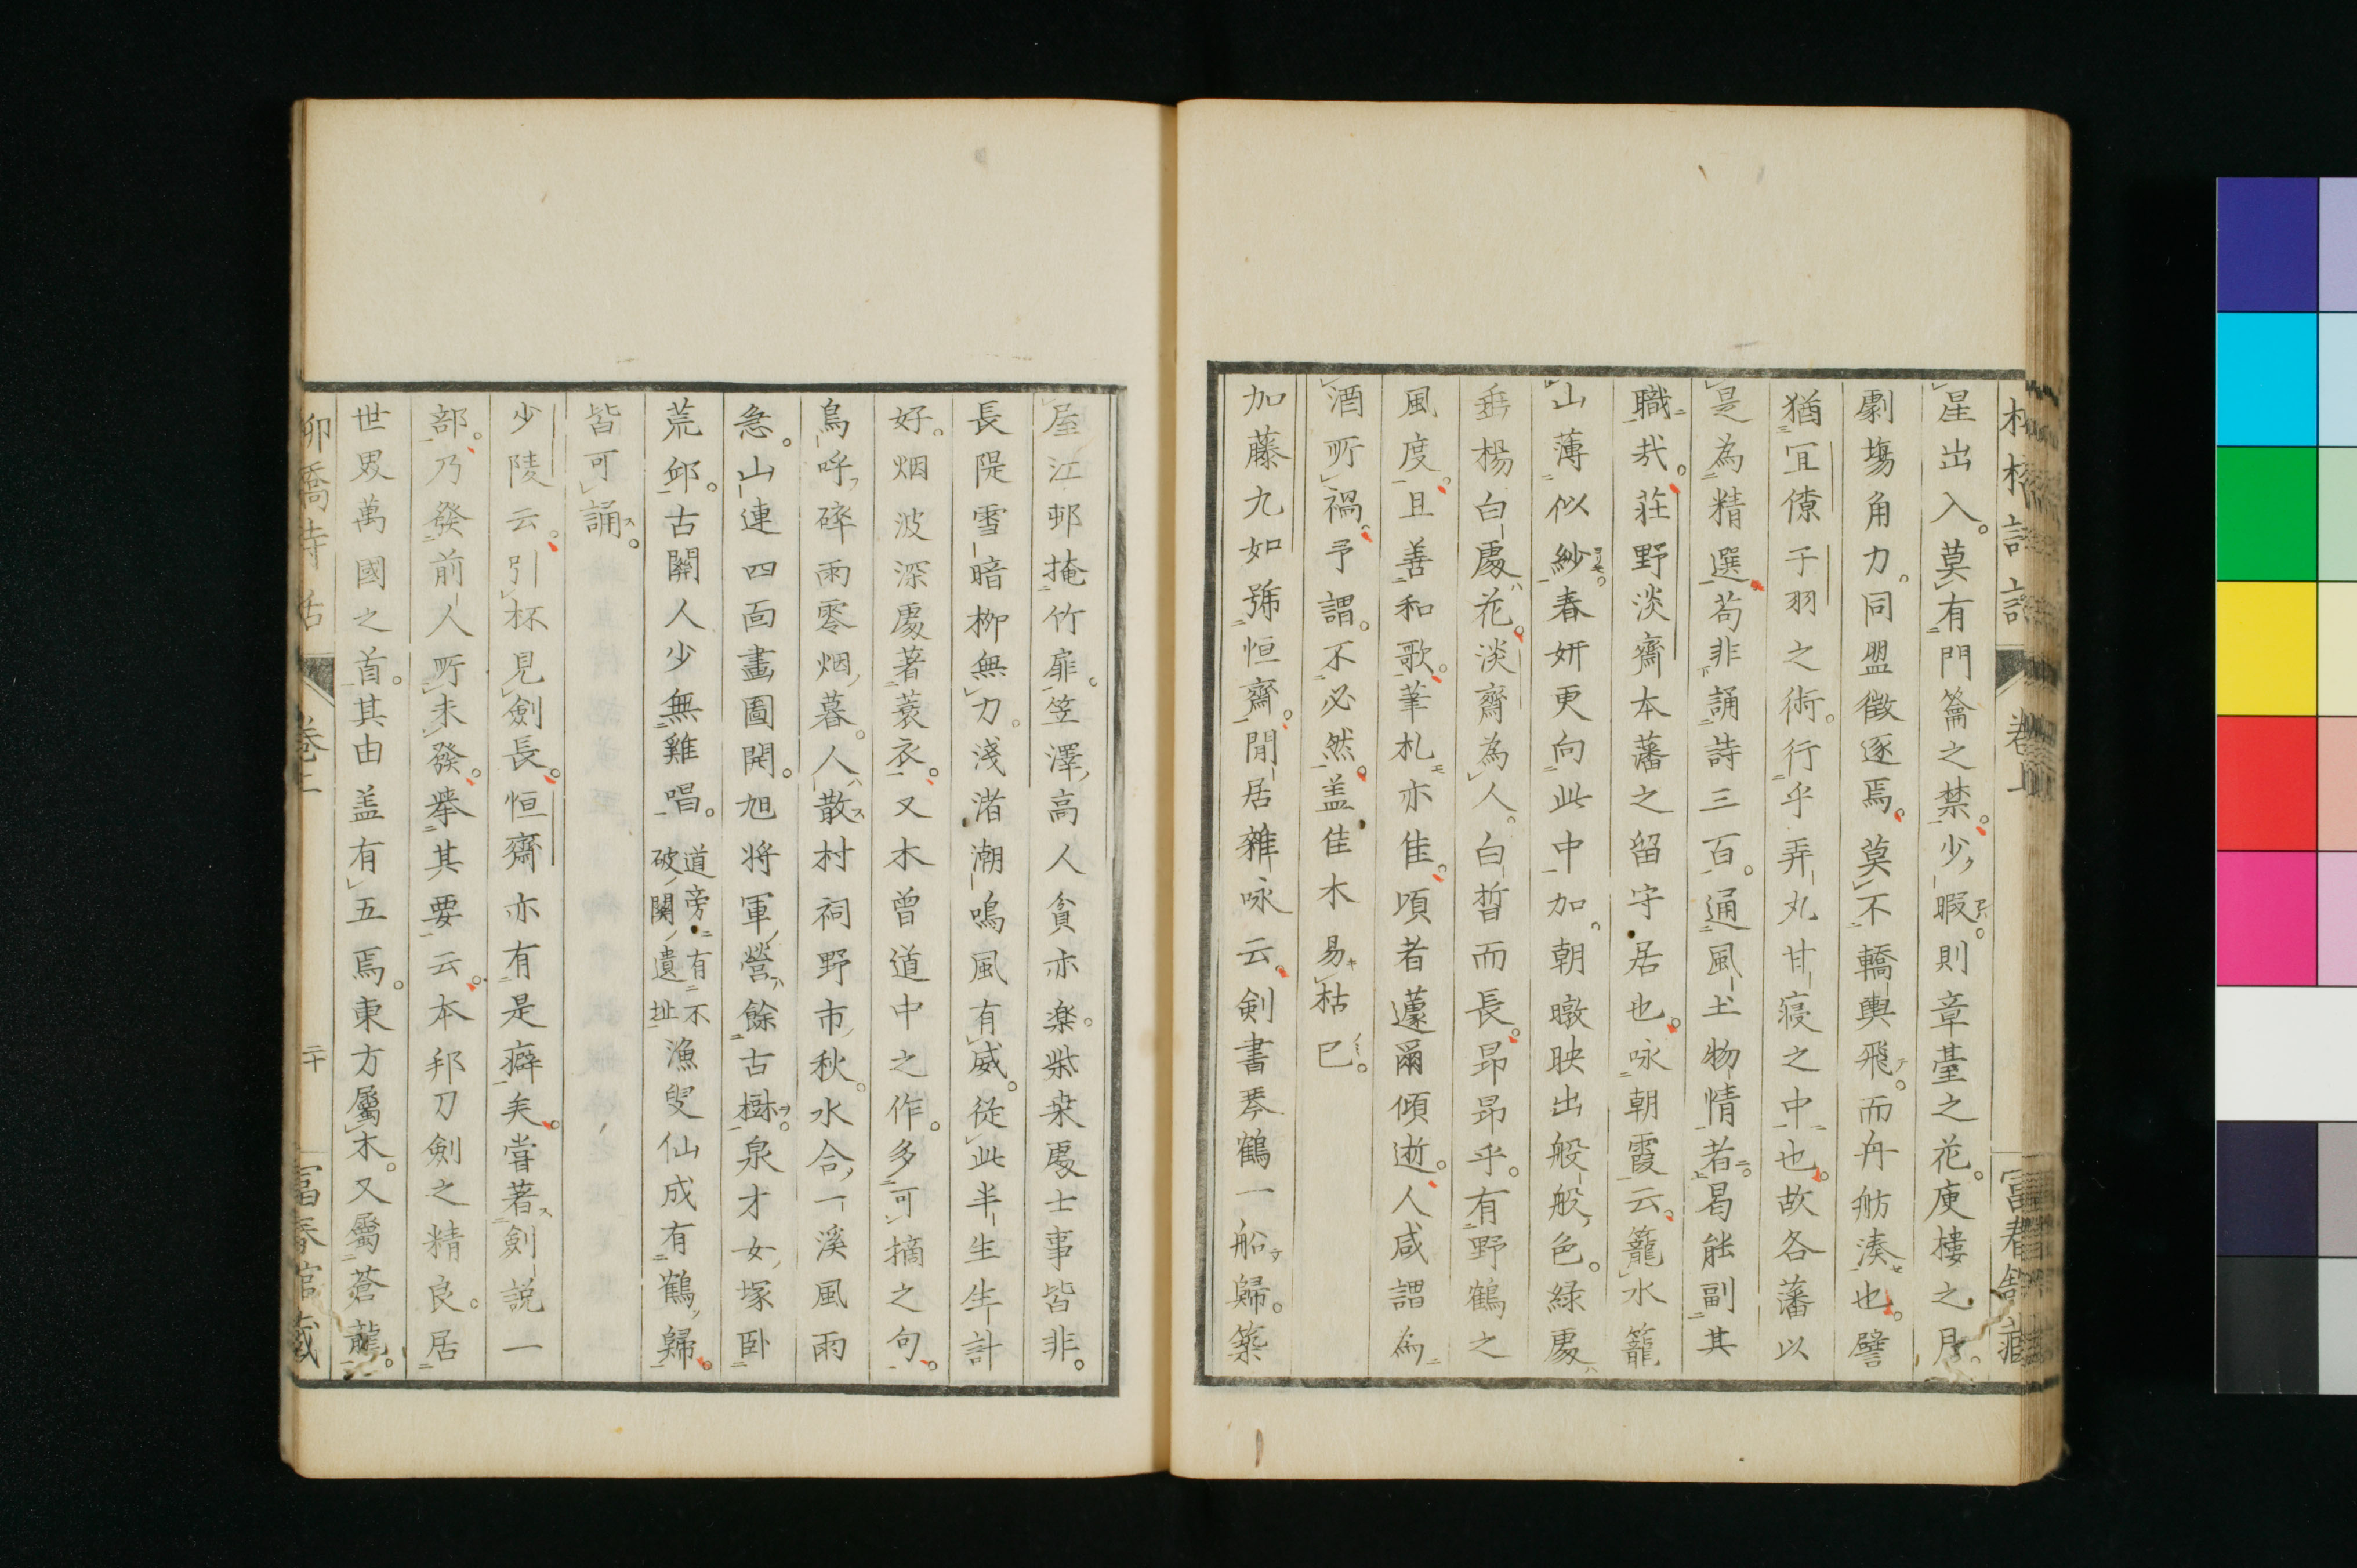 星出入。莫有門籥之禁。少暇。則章臺之花。庾樓之月。
劇塲角力。同盟徵逐焉。莫不轎輿飛。而舟舫湊也。譬
猶宜僚子羽之術。行乎弄丸甘寢之中也。故各藩以
是為精選。苟非誦詩三百。通風土物情者。曷能副其
職哉。莊野淡齋本藩之留守居也。咏朝霞云。籠水籠
山薄似紗。春妍更向此中加。朝暾映出般般色。綠處
垂楊白處花。淡齋為人。白晳而長。昂昂乎。有野鶴之
風度。且善和歌。筆札亦佳。頃者蘧爾傾逝。人咸謂為
酒所禍。予謂。不必然。盖佳木易枯已。
加藤九如號恒齋。閒居雜咏云。剣書琴鶴一船歸。築
屋江邨掩竹扉。笠澤高人貧亦楽。柴桒處士事皆非。
長隄雪暗柳無力。淺渚潮鳴風有威。從此半生生計
好。烟波深處著蓑衣。又木曾道中之作。多可摘之句。
鳥呼碎雨零烟暮。人散村祠野市秋。水合一溪風雨
急。山連四面畫圖開。旭将軍營餘古樹。泉才女塚卧
荒邱。古關人少無雞唱。道旁有不破關遺址漁叟仙成有鶴歸。
皆可誦。
少陵云。引杯見劍長。恒齋亦有是癖矣。嘗著劍說一
部。乃發前人所未發。挙其要云。本邦刀剣之精良。居
世界萬國之首。其由盖有五焉。東方屬木。又屬蒼龍。
柳橋詩話 卷上 二十 富春館藏